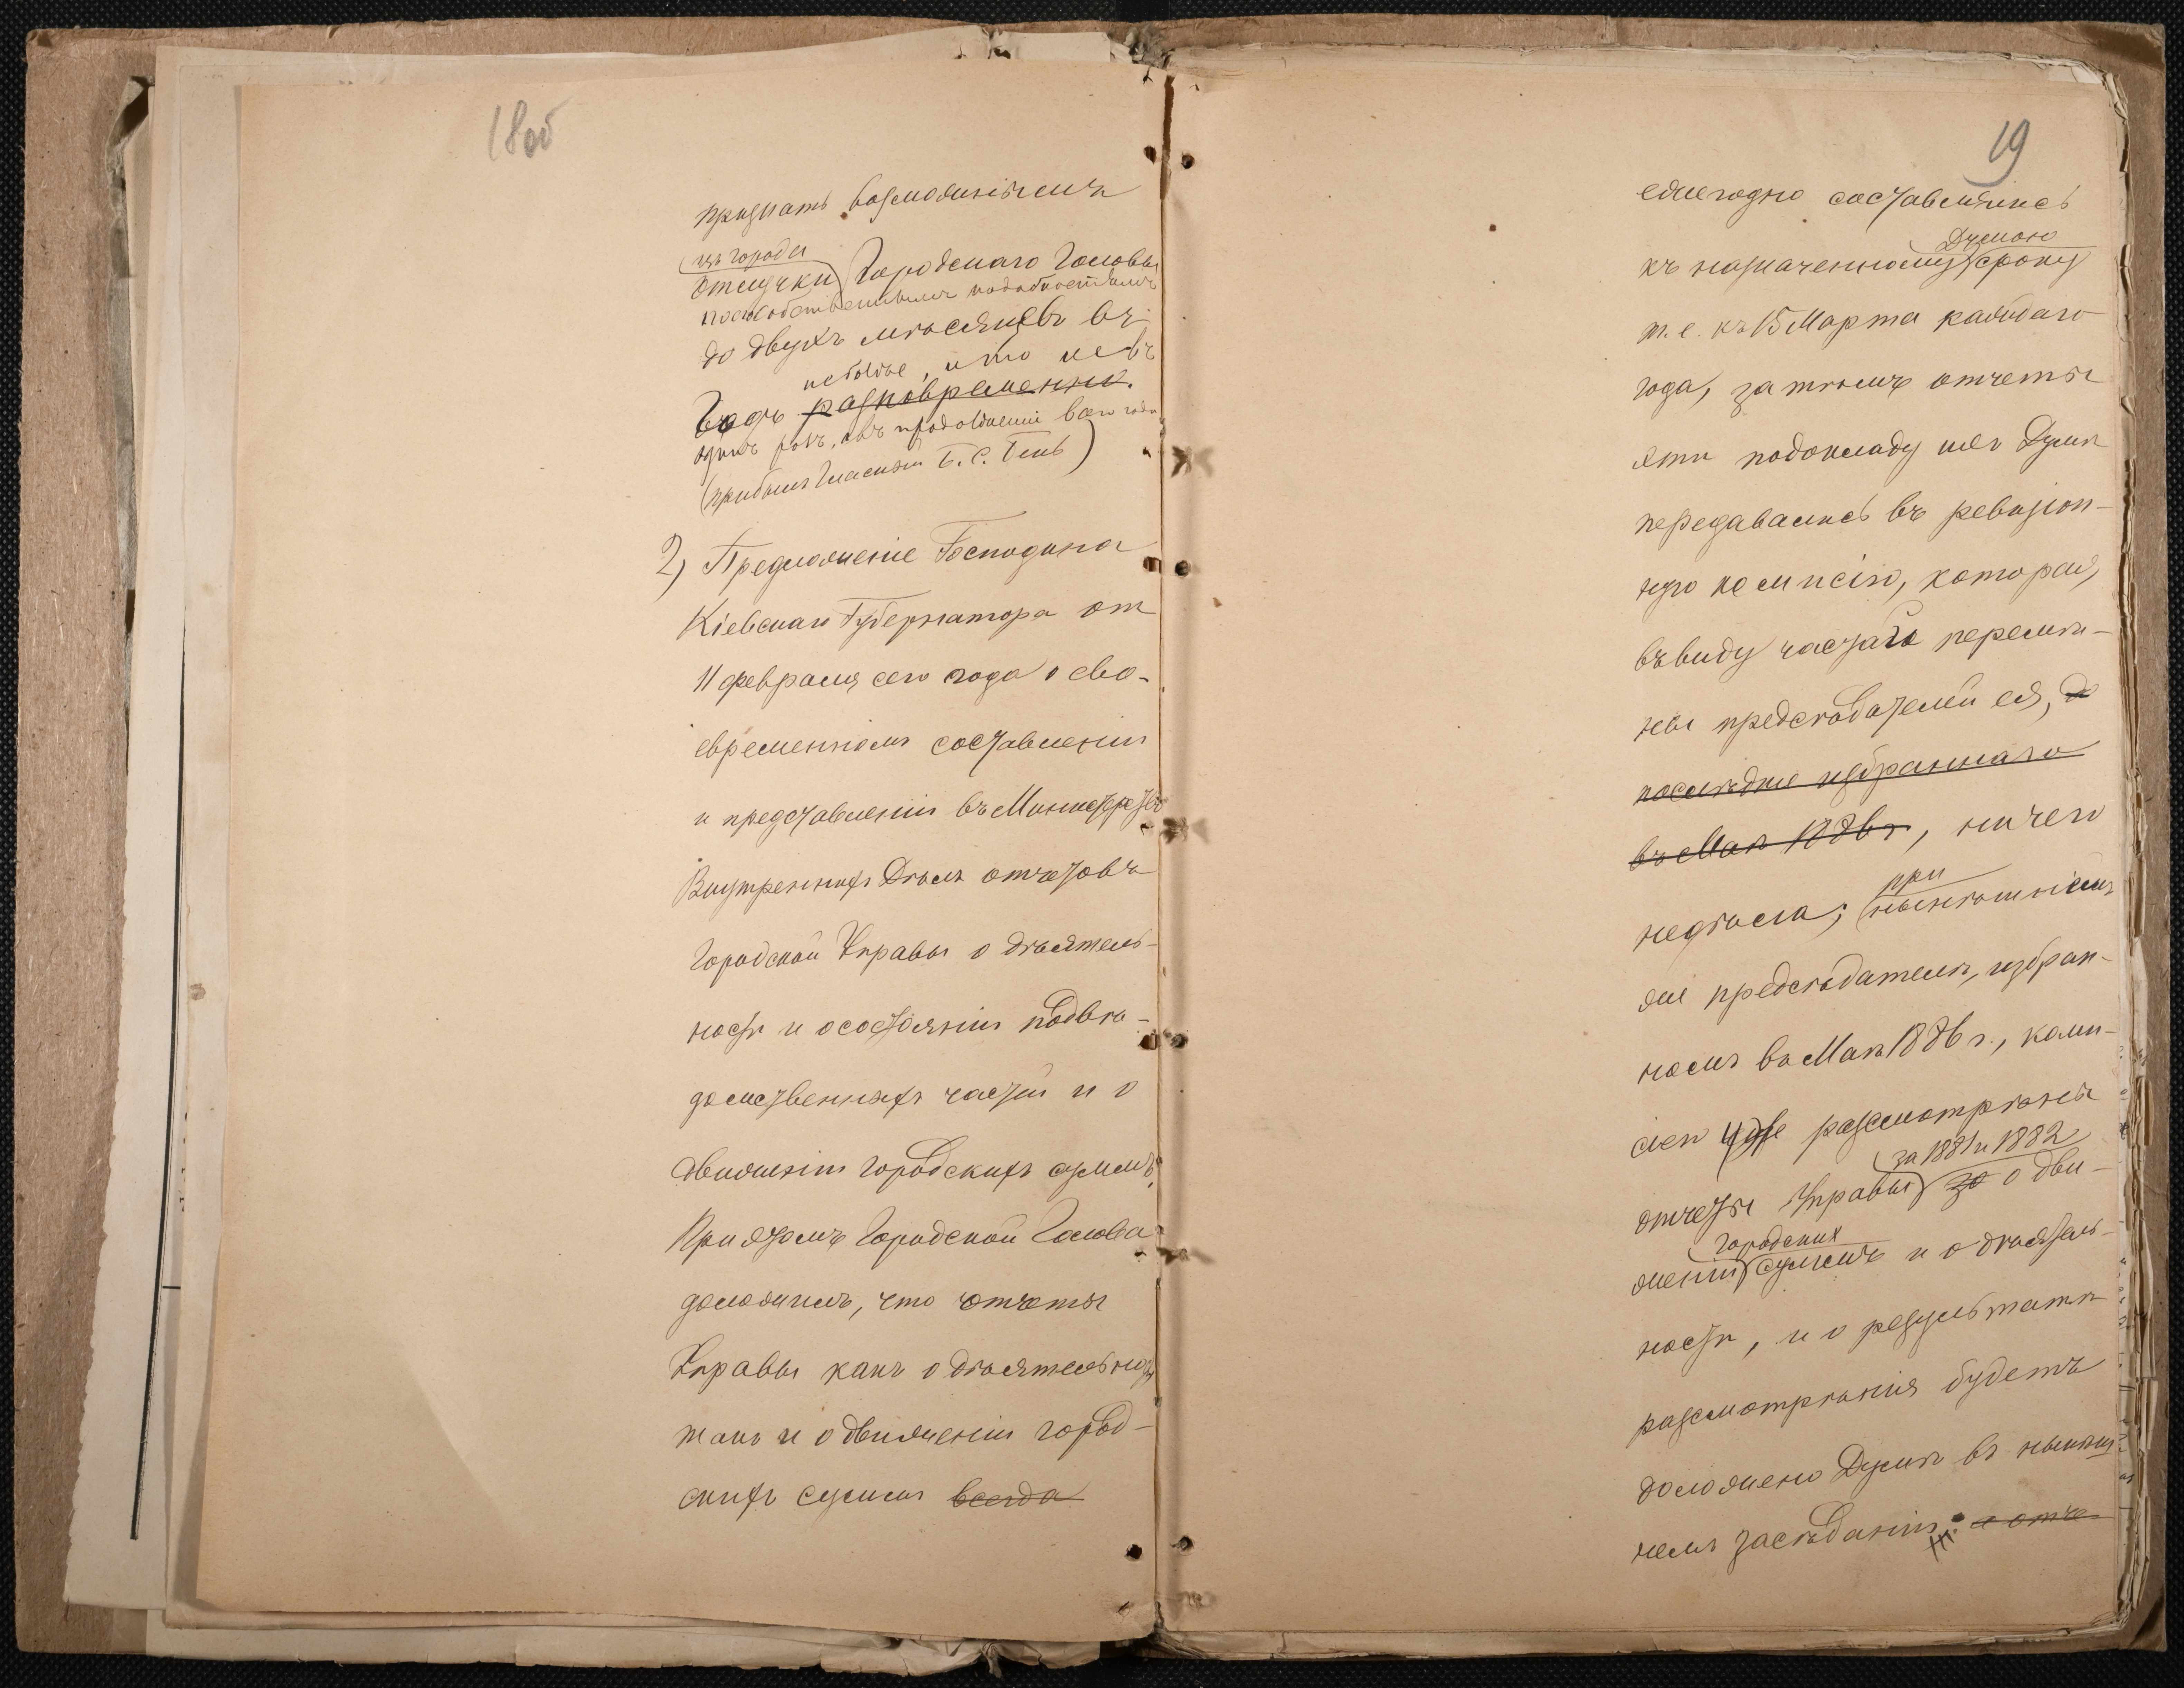 18об
признать возможнымъ
изъ города
отлучки Городскаго Головы
по собственнымъ надобностямъ
до двухъ мѣсяцевъ въ
не болѣе, и то не въ
годъ разновременно.
одинъ разъ, а въ продолженіи всего года
(прибылъ Гласный Б. С.
2) Предложеніе Господина
Кіевскаго Губернатора от
11 февраля сего года о сво-
евременномъ составленіи
и представленіи въ Министерство
Внутреннихъ Дѣлъ отчетовъ
Городской Управы о дѣятель-
ности и о состояніи подвѣ-
домственныхъ частей и о
движеніи городскихъ суммъ.
При этомъ Городской Голова
доложилъ, что отчеты
Управы какъ о дѣятельности
такъ и о движеніи город-
скихъ суммъ всегда
19
ежегодно составлялись
Думою
къ назначенному сроку
т. е. къ 15 Марта каждаго
года, затѣмъ отчеты
эти по докладу ихъ Думѣ
передавались въ ревизіон-
ную комисію, которая,
въ виду частой перемѣ-
ны предсѣдателей ея, до
послѣдне избраннаго
въ Маѣ 1886 г., ничего
при
недѣлала; нынѣшнемъ
же предсѣдателѣ, избран-
номъ въ Маѣ 1886 г., коми-
сіею уже разсмотрѣны
за 1881 и 1882
отчеты Управы за о дви-
городскихъ
женіи суммъ и о дѣятель-
ности, и о результатѣ
разсмотрѣнія будетъ
доложено Думѣ въ нынѣш-
немъ засѣданіи. а отче-